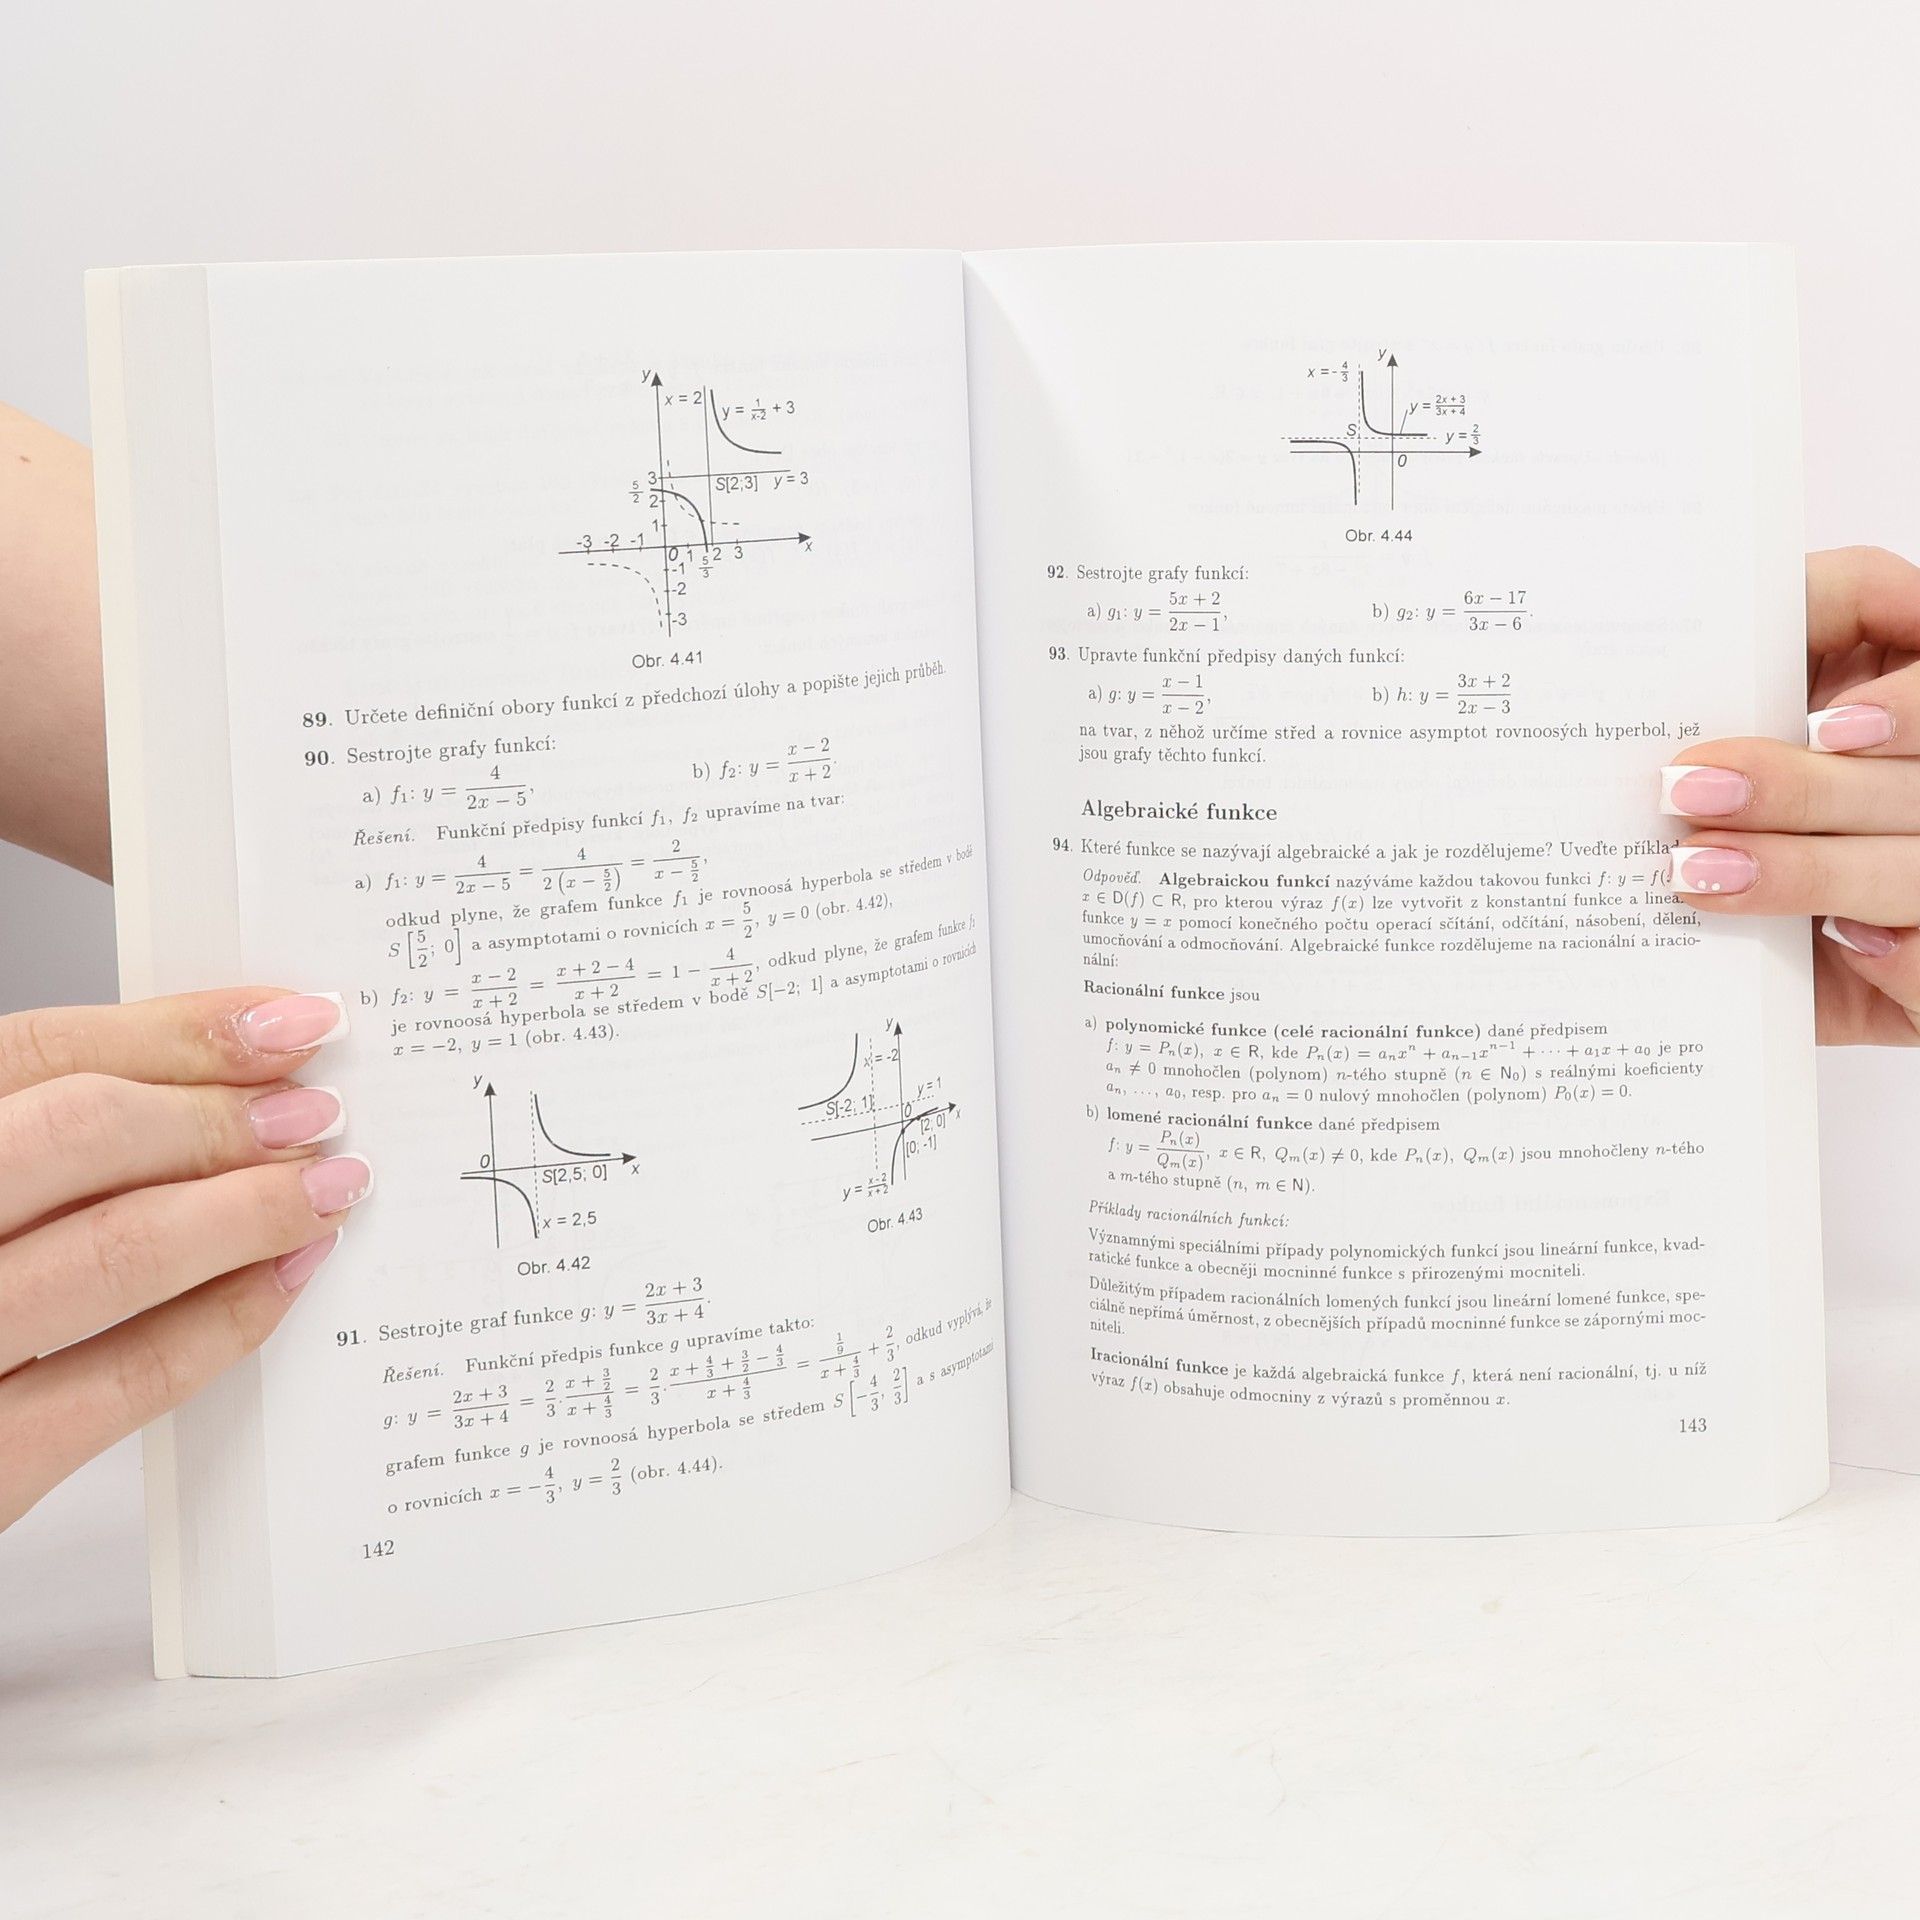 y
x = 2
y = 1/(x-2) + 3
3
5/2
2
S[2;3] y = 3
1
-3 -2 -1 0 1 5/3 2 3 x
-1
-2
-3
Obr. 4.41
89. Určete definiční obory funkcí z předchozí úlohy a popište jejich průběh.
90. Sestrojte grafy funkcí:
a) f₁: y = 4/(2x − 5), b) f₂: y = (x − 2)/(x + 2).
Řešení. Funkční předpisy funkcí f₁, f₂ upravíme na tvar:
a) f₁: y = 4/(2x − 5) = 4/(2(x − 5/2)) = 2/(x − 5/2),
odkud plyne, že grafem funkce f₁ je rovnoosá hyperbola se středem v bodě
S[5/2; 0] a asymptotami o rovnicích x = 5/2, y = 0 (obr. 4.42),
b) f₂: y = (x − 2)/(x + 2) = (x + 2 − 4)/(x + 2) = 1 − 4/(x + 2), odkud plyne, že grafem funkce f₂
je rovnoosá hyperbola se středem v bodě S[−2; 1] a asymptotami o rovnicích
x = −2, y = 1 (obr. 4.43).
y
0
S[2,5; 0] x
x = 2,5
Obr. 4.42
y
x = -2
y = 1
S[-2; 1]
0 x
[2; 0]
[0; -1]
y = (x-2)/(x+2)
Obr. 4.43
91. Sestrojte graf funkce g: y = (2x + 3)/(3x + 4).
Řešení. Funkční předpis funkce g upravíme takto:
g: y = (2x + 3)/(3x + 4) = 2/3 · (x + 3/2)/(x + 4/3) = 2/3 · (x + 4/3 + 3/2 − 4/3)/(x + 4/3) = (1/9)/(x + 4/3) + 2/3, odkud vyplývá, že
grafem funkce g je rovnoosá hyperbola se středem S[−4/3, 2/3] a s asymptotami
o rovnicích x = −4/3, y = 2/3 (obr. 4.44).
142
y
x = -4/3
y = (2x + 3)/(3x + 4)
S
y = 2/3
0
Obr. 4.44
92. Sestrojte grafy funkcí:
a) g₁: y = (5x + 2)/(2x − 1), b) g₂: y = (6x − 17)/(3x − 6).
93. Upravte funkční předpisy daných funkcí:
a) g: y = (x − 1)/(x − 2), b) h: y = (3x + 2)/(2x − 3)
na tvar, z něhož určíme střed a rovnice asymptot rovnoosých hyperbol, jež
jsou grafy těchto funkcí.
Algebraické funkce
94. Které funkce se nazývají algebraické a jak je rozdělujeme? Uveďte příklad
Odpověď. Algebraickou funkcí nazýváme každou takovou funkci f: y = f(
x ∈ D(f) ⊂ R, pro kterou výraz f(x) lze vytvořit z konstantní funkce a lineá
funkce y = x pomocí konečného počtu operací sčítání, odčítání, násobení, dělení,
umocňování a odmocňování. Algebraické funkce rozdělujeme na racionální a iracio-
nální:
Racionální funkce jsou
a) polynomické funkce (celé racionální funkce) dané předpisem
f: y = Pₙ(x), x ∈ R, kde Pₙ(x) = aₙxⁿ + aₙ₋₁xⁿ⁻¹ + ··· + a₁x + a₀ je pro
aₙ ≠ 0 mnohočlen (polynom) n-tého stupně (n ∈ N₀) s reálnými koeficienty
aₙ, ..., a₀, resp. pro aₙ = 0 nulový mnohočlen (polynom) P₀(x) = 0.
b) lomené racionální funkce dané předpisem
f: y = Pₙ(x)/Qₘ(x), x ∈ R, Qₘ(x) ≠ 0, kde Pₙ(x), Qₘ(x) jsou mnohočleny n-tého
a m-tého stupně (n, m ∈ N).
Příklady racionálních funkcí:
Významnými speciálními případy polynomických funkcí jsou lineární funkce, kvad-
ratické funkce a obecněji mocninné funkce s přirozenými mocniteli.
Důležitým případem racionálních lomených funkcí jsou lineární lomené funkce, spe-
ciálně nepřímá úměrnost, z obecnějších případů mocninné funkce se zápornými moc-
niteli.
Iracionální funkce je každá algebraická funkce f, která není racionální, tj. u níž
výraz f(x) obsahuje odmocniny z výrazů s proměnnou x.
143